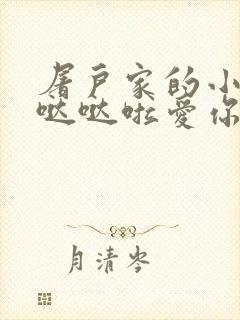 屠户家的小
哒哒啦爱你
月清岑